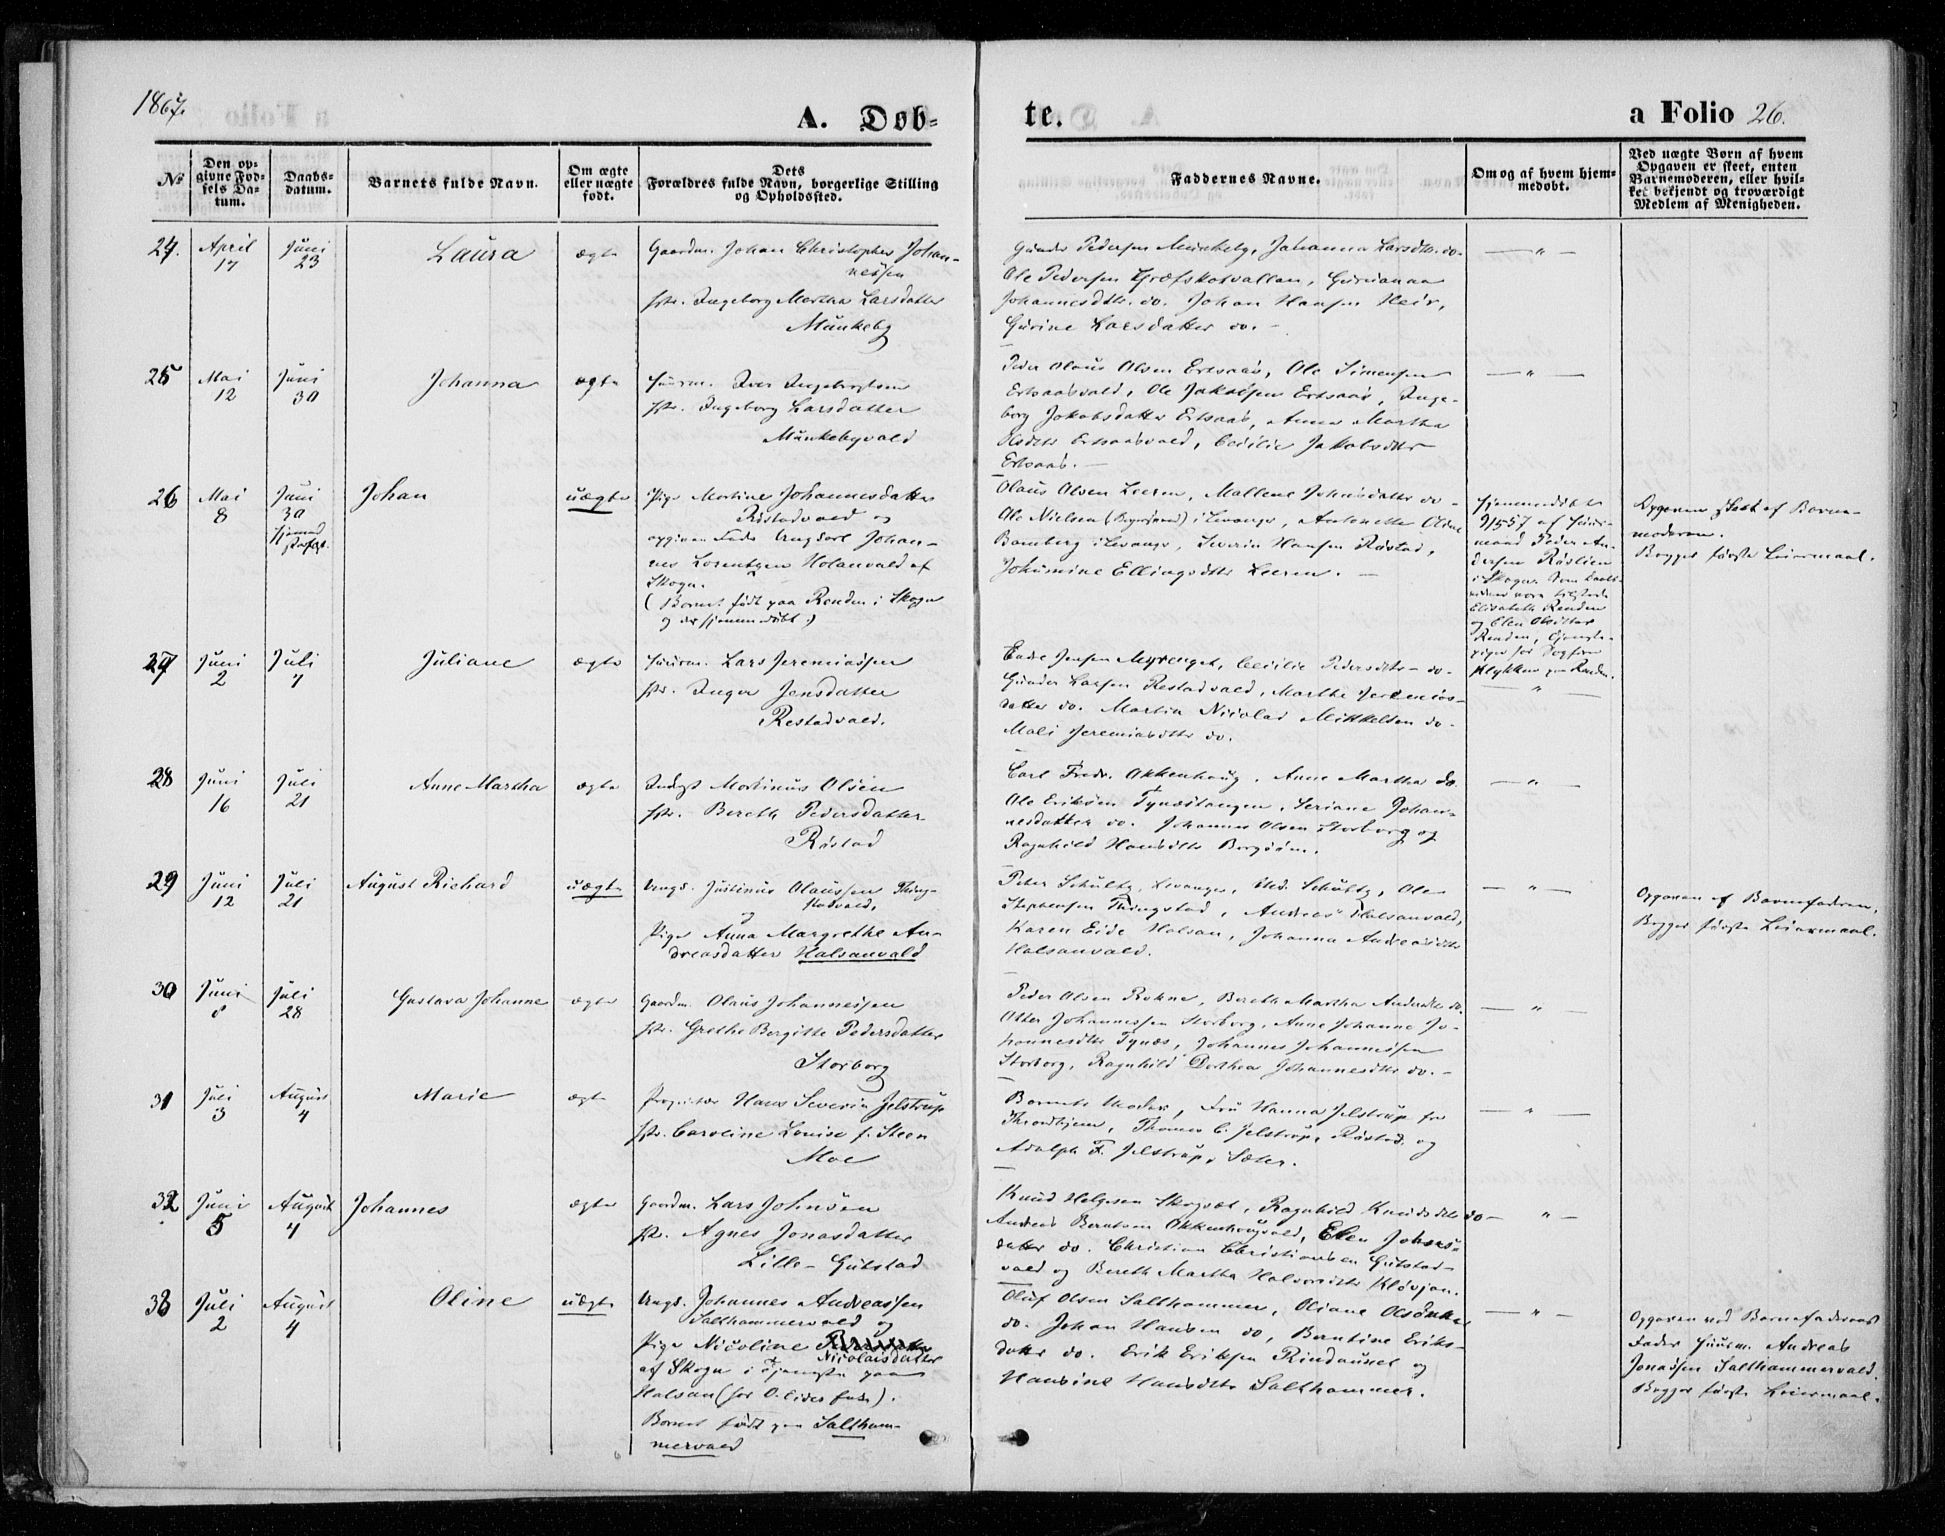 1867.
A. Døb-
te.
a Folio 26.
No
Den op-
givne Fød-
sels Da-
tum.
Daabs-
datum.
Barnets fulde Navn.
Om ægte
eller uægte
født.
Dets
Forældres fulde Navn, borgerlige Stilling
og Opholdssted.
Faddernes Navne.
Om og af hvem hjem-
medøbt.
Ved uægte Børn af hvem
Opgaven er skeet, enten
Barnemoderen, eller hvil-
ket bekjendt og troværdigt
Medlem af Menigheden.
24.
April
17
Juni
23
Laura
ægte
Gaardm. Johan Christopher Johan-
nessen
Ingeborg Martha Larsdatter
Munkeby
Gunder Pedersen Munkeby, Johanna Larsdtr. do.
Ole Pedersen Græfskotvallan,
Johannesdtr. do. Johan Hansen Heir,
Gurine Larsdatter do. -
— " —
25
Mai
12
Juni
30
Johanna
ægte
Huusm. Iver Ingebrigtsen
Ingeborg Larsdatter
Munkebyvald
Peder Olaus Olsen Ertsaas, Ole Simensen
Ertsaasvald, Ole Jakobsen Ertsaas, Inge-
borg Jakobsdatter Ertsaas, Anna Martha
Olsdtr Ertsaasvald, Cecilie Jakobsdtr
Ertsaas. -
— " —
26
Mai
8
Juni
30
Johan
uægte
Pige Martine Johannesdatter
Rostadvald og
opgiven Fader Ungkarl Johan-
nes Lorentzen Holanvald af
Skogn.
(Barnet født paa Renden i Skogn
og der hjemmedøbt.)
Olaus Olsen Leeren, Mallene Johnsdatter do -
Ole Nielsen i Levanger, Antonette
Bamberg i Levanger, Severin Hansen Røstad,
Johannine Ellingsdtr Leeren. -
hjemmedøbt
af Huus-
mand Peder An-
dersen Røslien
i Skogn. Som Daabs-
vidner vare tilstede
Elisabeth Renden
og Elen Olsdatter
Renden, Tjeneste-
piger hos
Klykken paa Renden.
Opgaven skeet af Barne-
moderen.
Begges første Leiermaal.
27
Juni
2
Juli
7
Juliane
ægte
Huusm. Lars Jeremiassen
Inger Jensdatter
Restadvald.
Endre Jensen Myrenget, Cecilie Pedersdtr - do -
Gunder Larsen Restadvald, Marthe Jeremias-
datter do. Martin Nicolai Mikkelsen do -
Mali Jeremiasdtr do.
— " —
28
Juni
16
Juli
21
Anne Martha
ægte
Inderst Martinus Olsen
Bereth Pedersdatter
Røstad
Carl Fredr. Okkenhaug, Anne Martha do.
Ole Eriksen Tynæstangen, Seriane Johan-
nesdatter do. Johannes Olsen Storborg og
Ragnhild Hansdtr Borgsøen.
— " —
29
Juni
12
Juli
21
August Richard
uægte
Ungk. Justinus Olaussen Thing-
stadvald,
og
Pige Anna Margrethe An-
dreasdatter Halsanvald
Peter Schultz, Levanger, Schultz, Ole
Stephensen Thingstad, Andreas Halsanvald,
Karen Eide Halsan, Johanna Andreasdtr
Halsanvald.
— " —
Opgaven af Barnefaderen.
Begges første Leiermaal.
30
Juni
8
Juli
28
Gustava Johanne
ægte
Gaardm. Olaus Johannessen
Grethe Bergitte Pedersdatter
Storborg
Peder Olsen Rokne, Bereth Martha Andersdtr do.
Otter Johannessen Storborg, Anne Johanne Jo-
hannesdtr Tynæs, Johannes Johannessen
Storborg, Ragnhild Dorthea Johannesdtr do. -
— " —
31
Juli
3
August
4
Marie
ægte
Proprietær Hans Severin Jelstrup
Caroline Louise f. Steen
Moe
Barnets Moder, Fru Hanna Jelstrup fra
Throndhjem, Thomas C. Jelstrup, Røstad, og
Adolph F. Jelstrup, Sæter.
— " —
32
Juni
5
August
4
Johannes
ægte
Gaardm. Lars Johnsen
Agnes Jonasdatter
Lille-Gubstad
Knud Helgesen Skogset, Ragnhild Knudsdtr do
Andreas Berntsen Okkenhougvald, Elen Johans-
datter do. Christian Christiansen Gubstad-
vald og Bereth Martha Halvorsdtr Kløvjan.
— " —
33
Juli
2
August
4
Oline
uægte
Ungk. Johannes Andreassen
Salthammervald og
Pige Nicoline
Nicolaisdatter
af Skogn i Tjeneste paa
Halsan (hos O. Eides Enke).
Barnet født paa Saltham-
mervald
Oluf Olsen Salthammer, Oliane
do. Johan Hansen do, Berntine Eriks-
datter do. Erik Eriksen Rindaunet og
Hansine Hansdtr Salthammer.
— " —
Opgaven ved Barnefaderens
Fader Huusm. Andreas
Jonassen Salthammervald.
Begges første Leiermaal.